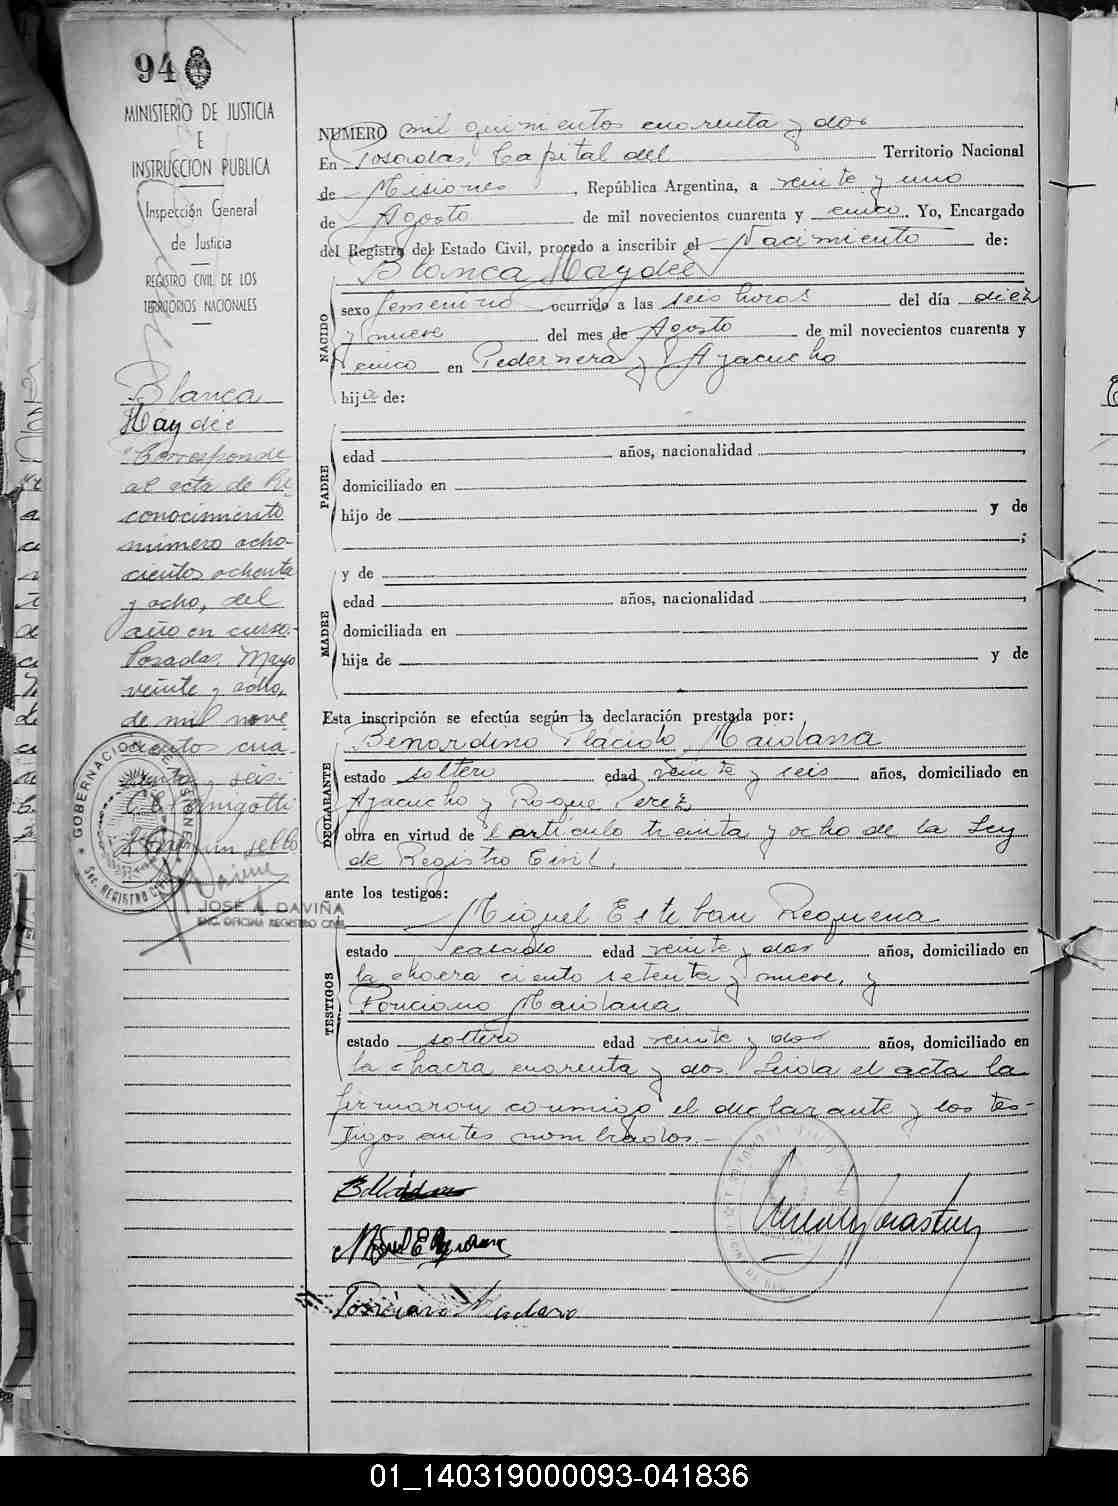 94
MINISTERIO DE JUSTICIA
E
INSTRUCCION PUBLICA
Inspección General
de Justicia
REGISTRO CIVIL DE LOS
TERRITORIOS NACIONALES
Blanca
Haydée
Corresponde
al acta de Re
conocimiento
número ocho-
cientos ochenta
y ocho, del
año en curso.-
Posadas, Mayo
veinte y ocho,
de mil nove
cientos cua-
renta y seis.
GOBERNACION MISIONES
Sec. REGISTRO CIVIL
JOSÉ A. DAVIÑA
ENC. OFICINA REGISTRO CIVIL
NUMERO mil quinientos cuarenta y dos
En Posadas, Capital del Territorio Nacional
de Misiones, República Argentina, a veinte y uno
de Agosto de mil novecientos cuarenta y cinco. Yo, Encargado
del Registro del Estado Civil, procedo a inscribir el Nacimiento de:
Blanca Haydée
NACIDO
sexo femenino ocurrido a las seis horas del día diez
y nueve del mes de Agosto de mil novecientos cuarenta y
cinco en Pedernera y Ayacucho
hija de:
PADRE
edad años, nacionalidad
domiciliado en
hijo de y de
;
MADRE
y de
edad años, nacionalidad
domiciliada en
hija de y de
Esta inscripción se efectúa según la declaración prestada por:
Benardino Plácido Maidana
DECLARANTE
estado soltero edad veinte y seis años, domiciliado en
Ayacucho y Roque Perez
obra en virtud de l artículo treinta y ocho de la Ley
de Registro Civil.
ante los testigos:
Miguel Esteban Requena
TESTIGOS
estado casado edad veinte y dos años, domiciliado en
la chacra ciento setenta y nueve, y
Ponciano Maidana
estado soltero edad veinte y dos años, domiciliado en
la chacra cuarenta y dos. Leida el acta la
firmaron conmigo el declarante y los tes-
tigos antes nombrados.-
Miguel E Requena
Ponciano Maidana
01_140319000093-041836